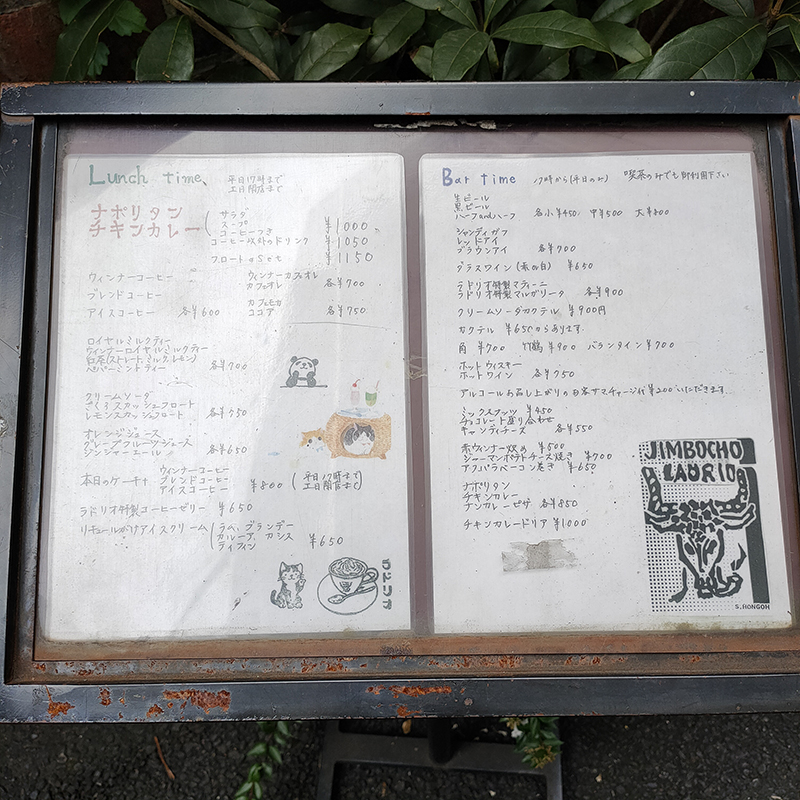 Lunch time、 平日17時まで
土日閉店まで
ナポリタン
チキンカレー
サラダ
スープ
コーヒーつき ¥1000
コーヒー以外のドリンク ¥1050
フロートのSet ¥1150
ウィンナーコーヒー
ブレンドコーヒー
アイスコーヒー 各¥600
ウィンナーカフェオレ
カフェオレ 各¥700
カフェモカ
ココア 各¥750
ロイヤルミルクティー
ウィンナーロイヤルミルクティー
紅茶(ストレート ミルク レモン)
ペパーミントティー 各¥700
クリームソーダ
コーラフロート
レモンスカッシュフロート
オレンジジュース
グレープフルーツジュース
ジンジャーエール 各¥650
本日のケーキ
ウィンナーコーヒー
ブレンドコーヒー
アイスコーヒー ¥800
(平日17時まで
土日閉店まで)
ラドリオ特製コーヒーゼリー ¥650
リキュールがけアイスクリーム
ラム、ブランデー
カルーア、カシス
ティフィン ¥650
Bar time 17時から(平日のみ) 喫茶のみでも御利用下さい
生ビール
黒ビール
ハーフandハーフ 各小¥450 中¥500 大¥800
シャンディガフ
レッドアイ
ブラウンアイ 各¥700
グラスワイン(赤or白) ¥650
ラドリオ特製マティーニ
ラドリオ特製マルガリータ 各¥900
クリームソーダカクテル ¥900円
カクテル ¥650からあります
角 ¥700 竹鶴 ¥900 バランタイン ¥700
ホットウィスキー
ホットワイン 各¥750
アルコールお召し上がりの日客サマチャージ代¥200いただきます
ミックスナッツ ¥450
チョコレート盛り合わせ
キャンディチーズ 各¥550
赤ウィンナー炒め ¥500
ジャーマンポテトチーズ焼き ¥700
アスパラベーコン巻き ¥650
ナポリタン
チキンカレー
ナンカレーピザ 各¥850
チキンカレードリア ¥1000
JIMBOCHO
LADRIO
S.HONGOH